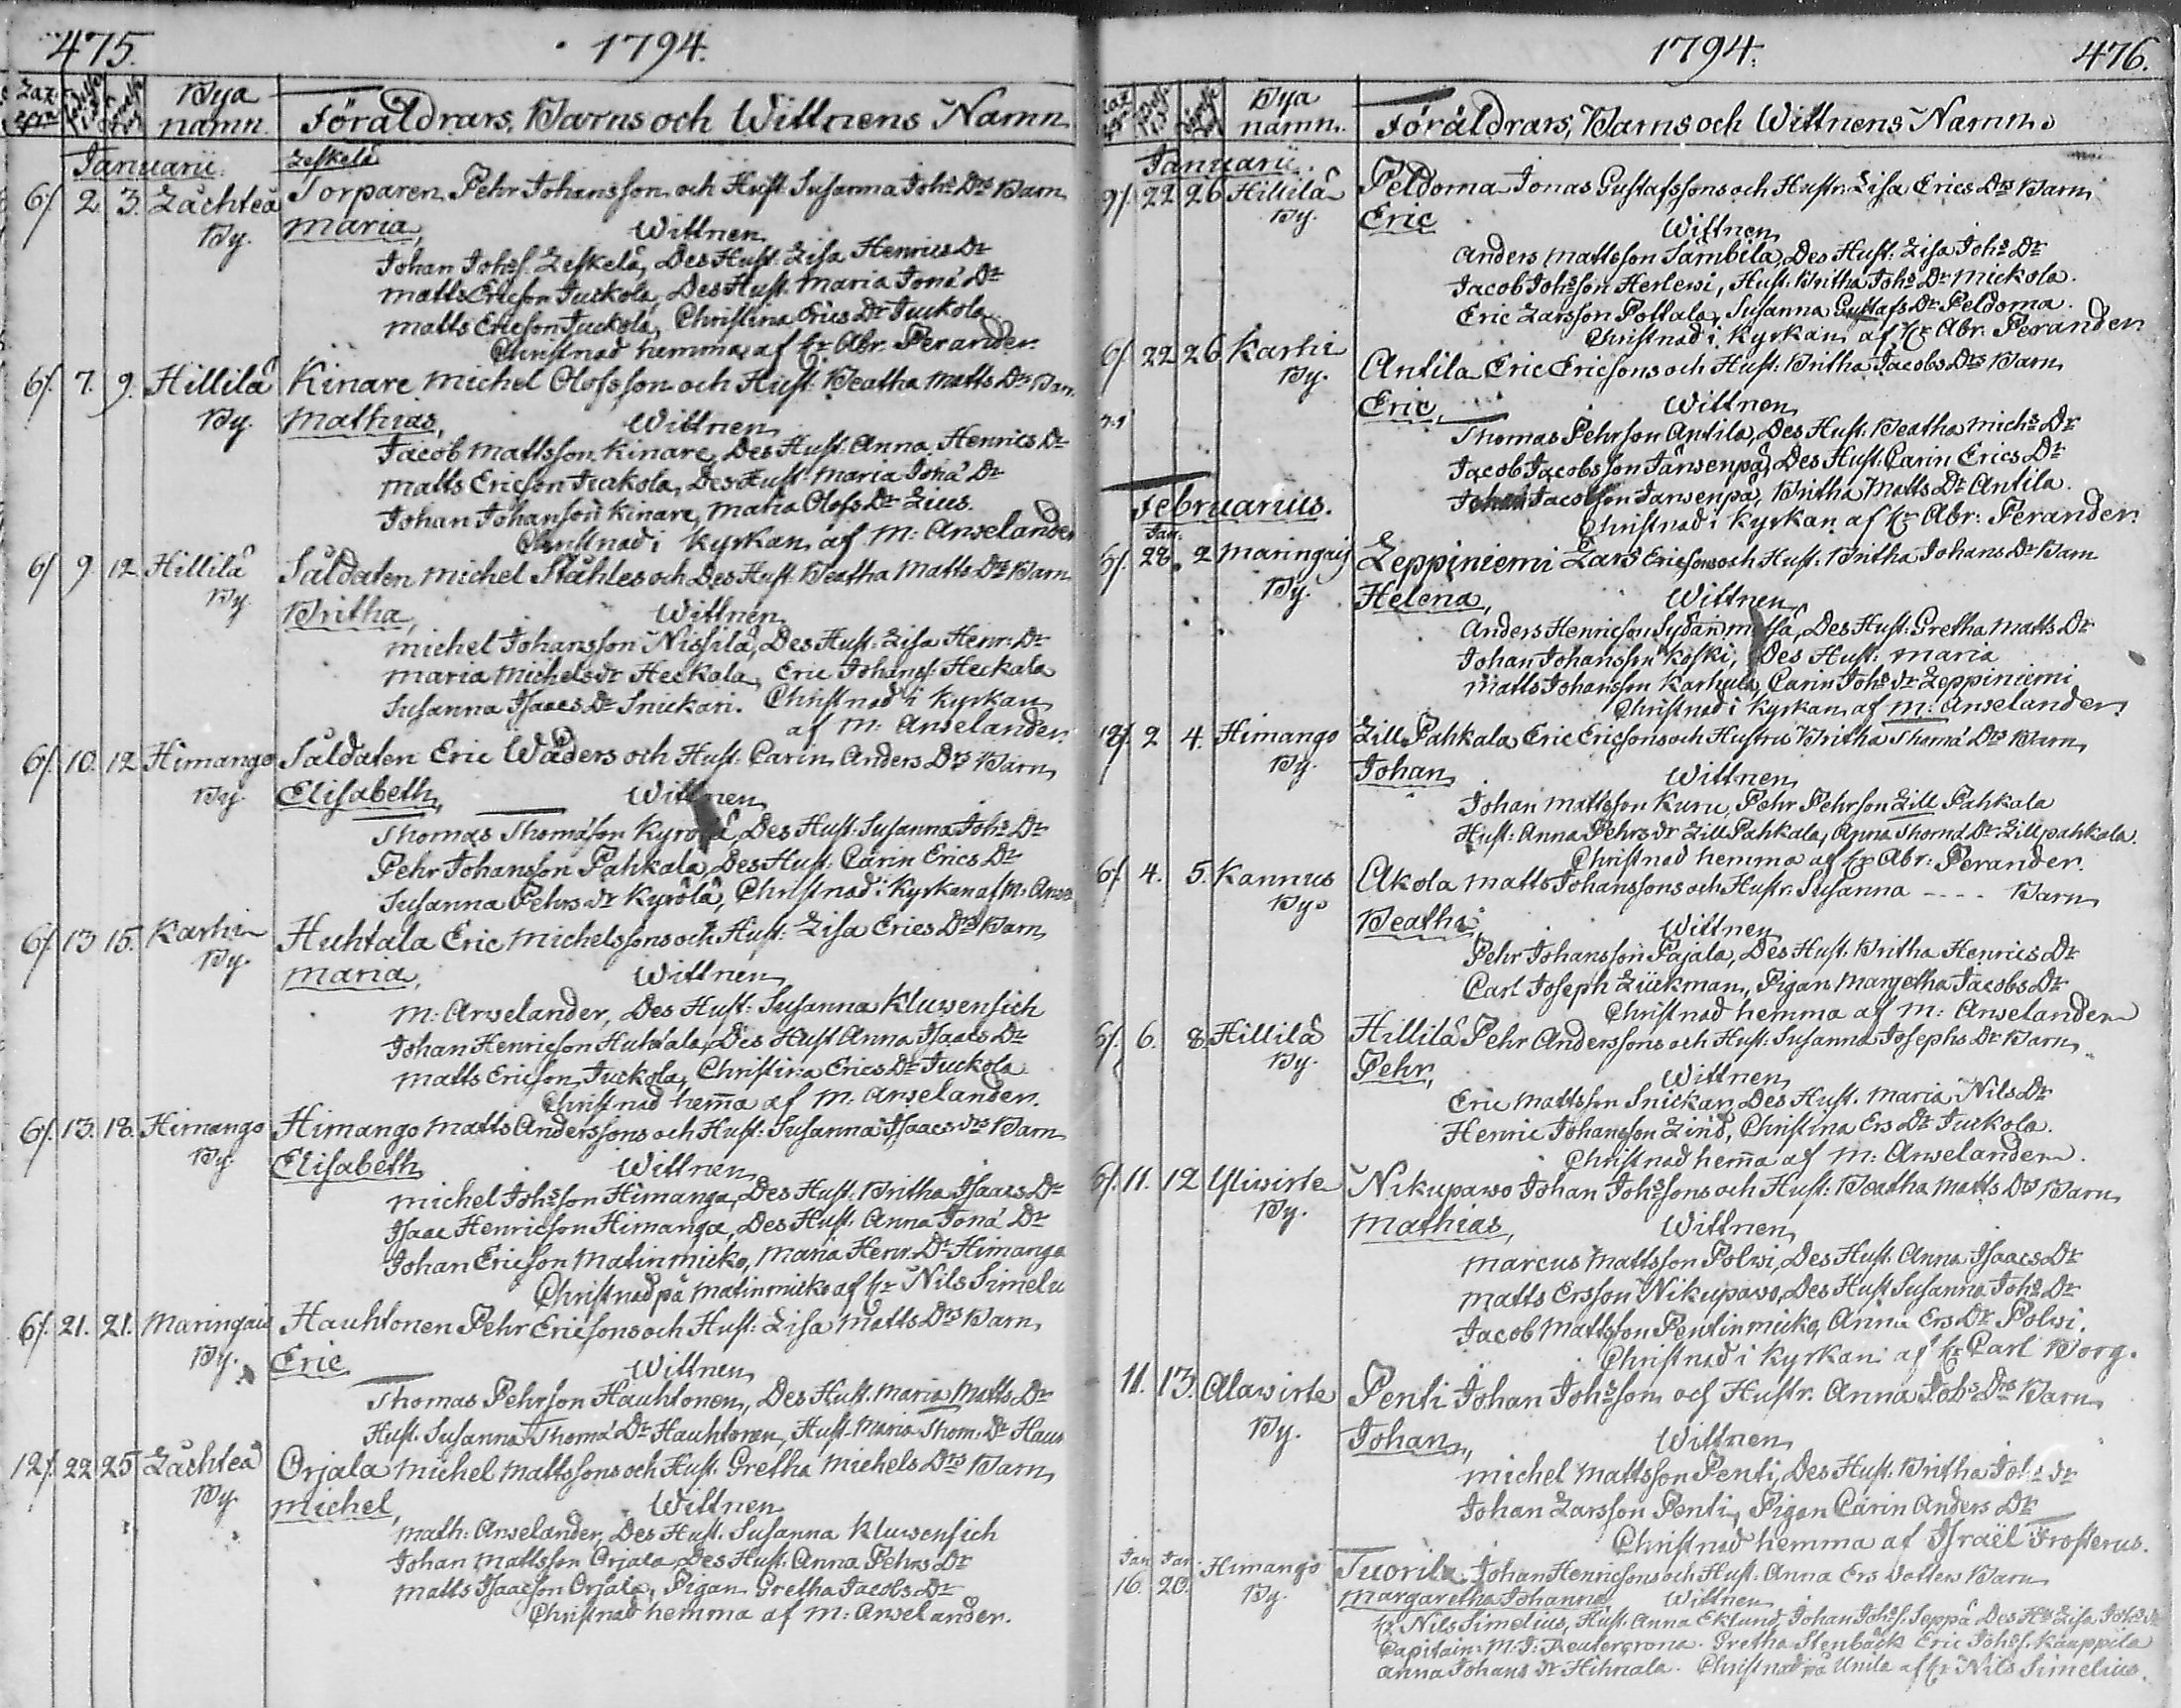 475. 1794.
Bya namn. Föräldrars, Barns och Wittnens Namn
Januarii. Leskelä
6/. 2. 3. Låchteå By. Torparen Pehr Johansson och Hust. Susanna Johs Drs Barn
Maria, Wittnen
Johan Johss. Leskelä, Des Hust: Lisa Henrics Dr
Matts Ericson Juckola, Des Hust. Maria Jona Dr
Matts Ericson Juckola, Christina Erics Dr Juckola
Christnad hemma af Hr Abr. Perander.
6/. 7. 9. Hillilä By. Kinare Michel Olofsson och Hust. Beatha Matts Drs Barn
Mathias, Wittnen
Jacob Mattsson Kinare, Des Hust. Anna Henrics Dr
Matts Ericson Juckola, Des Hust. Maria Jona Dr
Johan Johanson Kinare, Maria Olofs Dr
Christnad i Kyrkan af M: Arwelander
6/ 9. 12 Hillilä By. Såldaten Michel Ståhles och Des Hust. Beatha Matts Drs Barn
Britha, Wittnen
Michel Johansson Nissilä, Des Hust: Lisa Henr: Dr
Maria Michels dr Heckala, Eric Johanss: Heckala
Susanna Isaacs Dr Snickari. Christnad i Kyrkan
af M: Arwelander.
6/. 10. 12 Himango By. Såldaten Eric Wäders och Hust: Carin Anders Drs Barn
Elisabeth, Wittnen
Thomas Thomason Kyrölä, Des Hust. Susanna Johs Dr
Pehr Johansson Pahkala, Des Hust: Carin Erics Dr
Susanna Pehrs dr Kyrölä, Christnad i Kyrkan af M. Arwe
6/. 13 15. Karhi By. Huhtala Eric Michelssons och Hust: Lisa Erics Drs Barn
Maria, Wittnen
M: Arwelander, Des Hust: Susanna Kluwensich
Johan Henricson Huhtala, Des Hust Anna Isaacs Dr
Matts Ericson, Juckola, Christina Erics Dr Juckola
Christnad hem̄a af M. Arwelander.
6/. 13. 18. Himango By. Himango Matts Anderssons och Hust: Susanna Isaacs drs Barn
Elisabeth Wittnen
Michel Johsson Himanga, Des Hust: Britha Isaacs Dr
Isaac Henricson Himanga, Des Hust: Anna Jona Dr
Johan Ericson Matinmicko, Maria Henr. Dr Himanga
Christnad på Matinmicko af Hr Nils Simeliu
6/. 21. 21. Maringais By. Hauhtonen Pehr Ericsons och Hust: Lisa Matts Drs Barn
Eric Wittnen
Thomas Pehrson Hauhtonen, Des Hust. Maria Matts Dr
Hust. Susanna Thoma Dr Hauhtonen, Hust. Maria Thom. Dr Hauh
12/. 22 25 Låchteå By. Orjala Michel Mattssons och Hust. Gretha Michels Drs Barn
Michel, Wittnen
Math: Arwelander, Des Hust. Susanna Kluwensich
Johan Mattsson Orjala, Des Hust: Anna Pehrs Dr
Matts Isaacson Orjala, Pigan Gretha Jacobs Dr
Christnad hemma af M: Arwelander.
1794. 476.
Bya namn. Föräldrars, Barns och Wittnens Namn
Januarii
9/. 22 26 Hillilä By. Peldoma Jonas Gustafssons och Hustr: Lisa Erics Drs Barn
Eric Wittnen
Anders Mattsson Sämbilä, Des Hust: Lisa Johs Dr
Jacob Johsson Herlewi, Hust. Britha Johs Dr Mickola.
Eric Larsson Pottala, Susanna Gustafs Dr Peldoma.
Christnad i Kyrkan af Hr Abr. Perander
6/. 22 26 Karhi By. Antila Eric Ericsons och Hust: Britha Jacobs Drs Barn
Eric, Wittnen
Thomas Pehrson Antila, Des Hust. Beatha Michs Dr
Jacob Jacobsson Järwenpä, Des Hust: Carin Erics Dr
Johan Jacobsson Jarwenpä, Britha Matts Dr Antila.
Christnad i Kyrkan af Hr Abr: Perander.
Februarius.
Jan.
6/. 28. 2 Maringais By. Leppiniemi Lars Ericsons och Hust: Britha Johans Dr Barn
Helena, Wittnen
Anders Henricson Sydänmetsä, Des Hust: Gretha Matts Dr
Johan Johansson Koski, Des Hust: Maria
Matts Johansson Karhula, Carin Johs dr Leppiniemi
Christnad i Kyrkan af M: Arwelander.
12/. 2 4. Himango By. Lill Pahkala Eric Ericsons och Hustru Britha Thoma Drs Barn
Johan Wittnen
Johan Mattsson Kuru, Pehr Pehrson Lill Pahkala
Hust: Anna Pehrs dr Lill Pahkala, Anna Thoma Dr Lillpahkala.
Christnad hemma af Hr Abr: Perander.
6/. 4. 5. Kannus By. Akola Matts Johanssons och Hustr. Susanna - - - - Barn
Beatha, Wittnen
Pehr Johansson Pajala, Des Hust. Britha Henrics Dr
Carl Joseph Lückman, Pigan Margetha Jacobs Dr
Christnad hemma af M: Arwelander
6/. 6. 8. Hillilä By. Hillilä Pehr Anderssons och Hust: Susanna Josephs Dr Barn
Pehr, Wittnen
Eric Mattsson Snickar, Des Hust. Maria Nils Dr
Henric Johansson Lind, Christina Ers Dr Juckola.
Christnad hem̄a af M: Arwelander.
6/. 11. 12 Yliwirte By. Nikupawo Johan Johssons och Hust: Beatha Matts Drs Barn
Mathias, Wittnen
Marcus Mattsson Polwi, Des Hust. Anna Isaacs Dr
Matts Ersson Nikupawo, Des Hust Susanna Johs Dr
Jacob Mattsson Pentinmicko, Anna Ers Dr Polwi.
Christnad i Kyrkan af Hr Carl Borg.
11. 13. Alawirte By. Penti Johan Johsson och Hustr. Anna Johs Drs Barn
Johan, Wittnen
Michel Mattsson Penti, Des Hust: Britha Johs dr
Johan Larsson Penti, Pigan Carin Anders Dr
Christnad hemma af Israël Frosterus.
Jan 16. Jan. 20. Himango By. Tuorila Johan Henricsons och Hust: Anna Ers dotters Barn
Margaretha Johanna Wittnen
Hr Nils Simelius, Hust. Anna Eklund, Johan Johss. Seppä Des Hu Lisa Johs dr
Capitain: M: J: Reutercrona. Gretha Stenbäck Eric Johss. Kauppila
Anna Johans dr Hihnala. Christnad på Unila af Hr Nils Simelius.